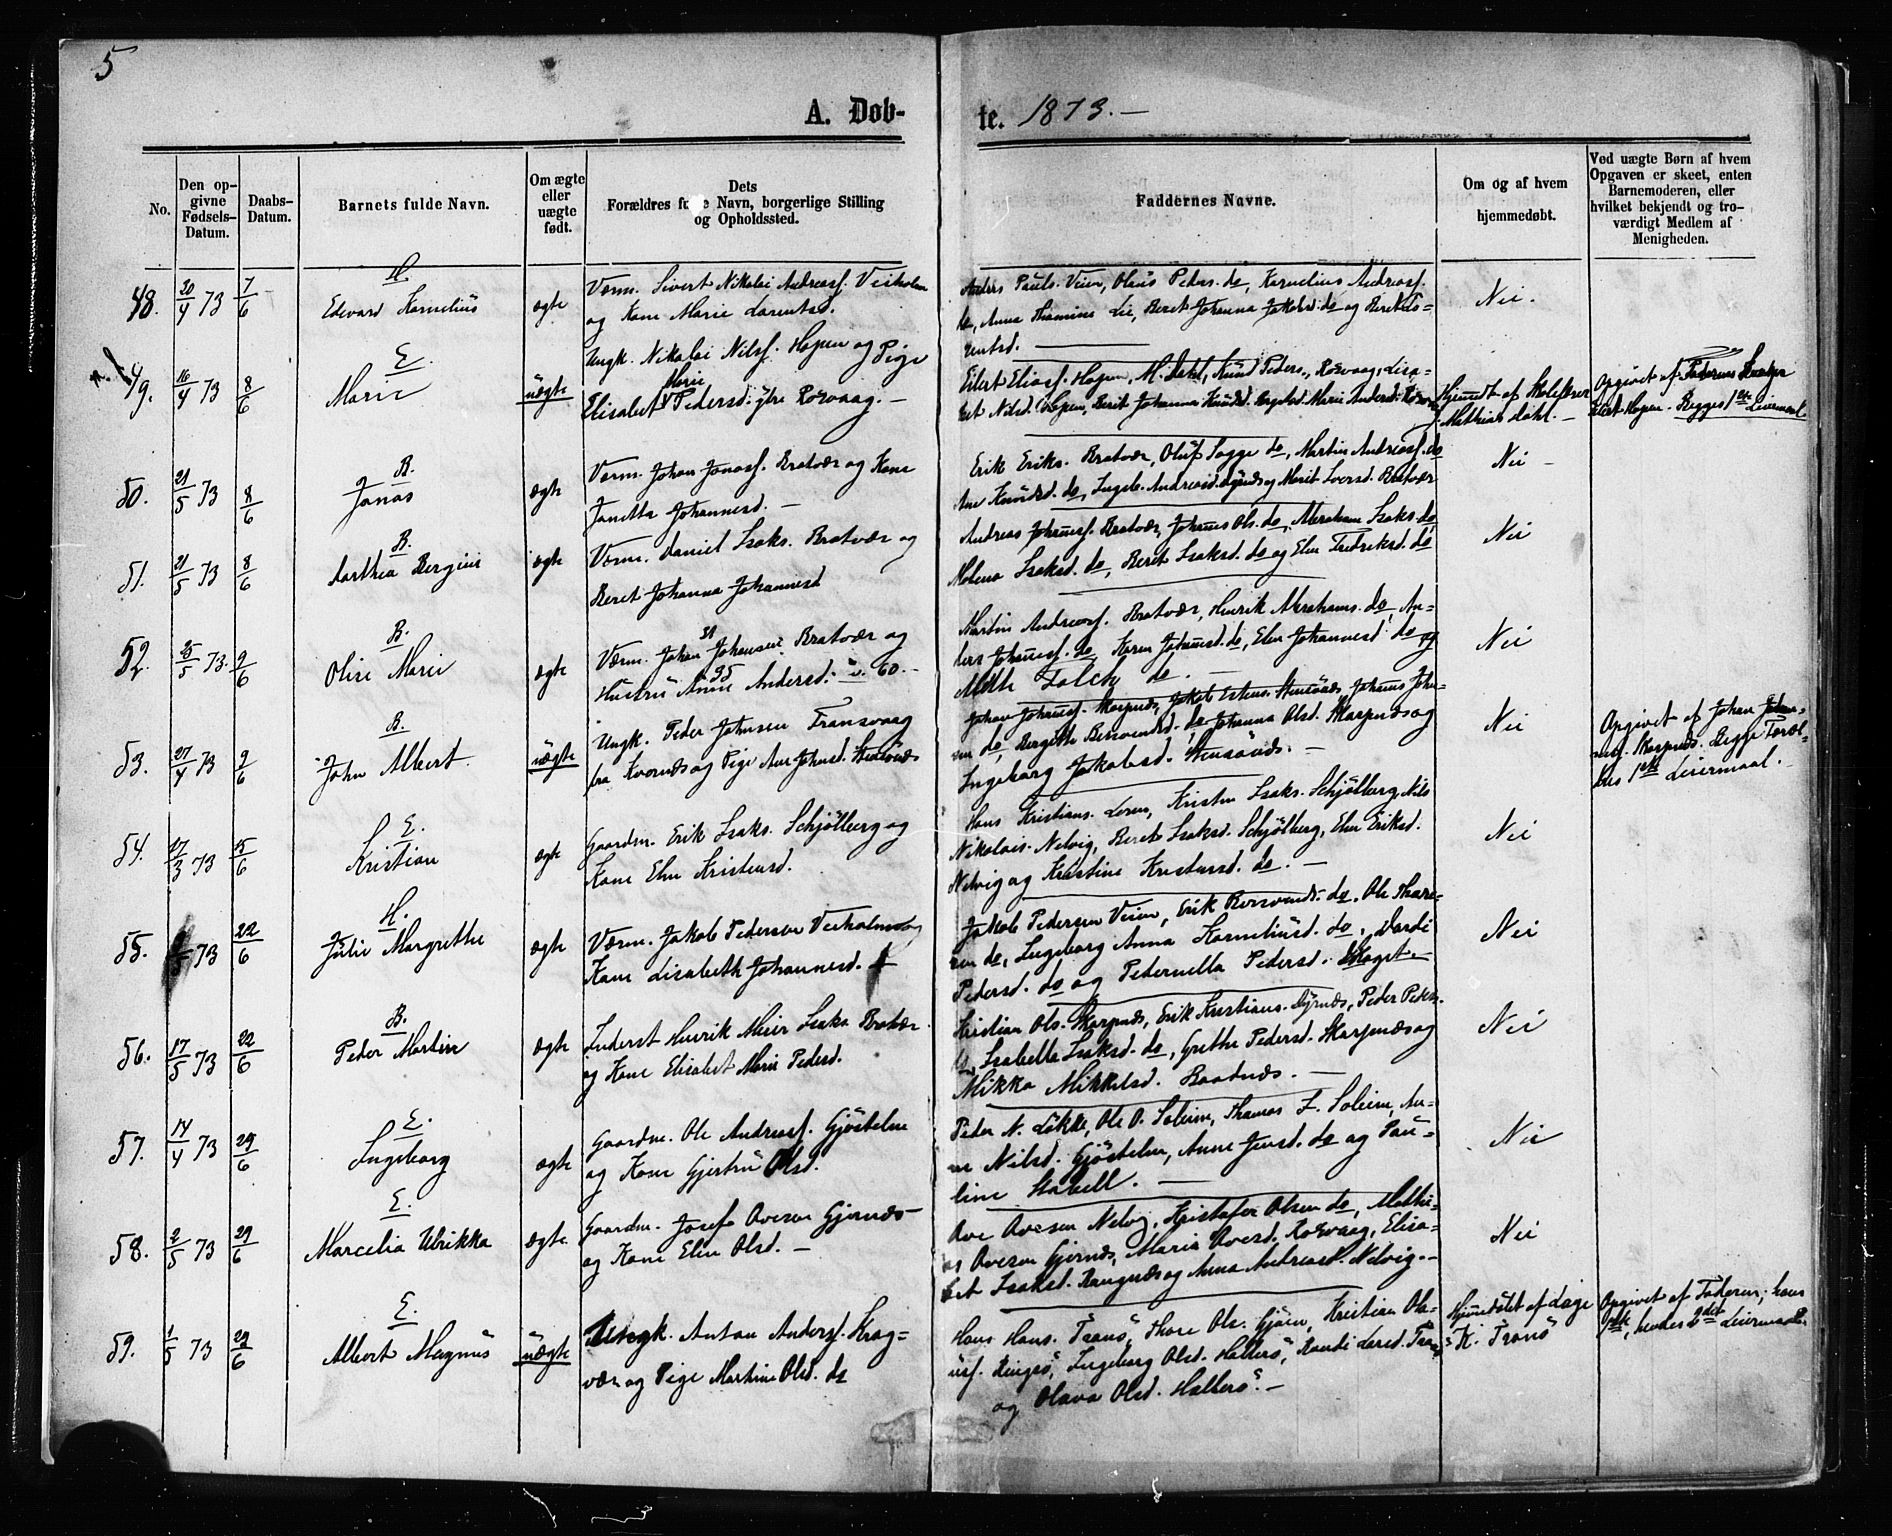 5
A. Døb-
te. 1873. —
No.
Den op-
givne
Fødsels-
Datum.
Daabs-
Datum.
Barnets fulde Navn.
Om ægte
eller
uægte
født.
Dets
Forældres fulde Navn, borgerlige Stilling
og Opholdssted.
Faddernes Navne.
Om og af hvem
hjemmedøbt.
Ved uægte Børn af hvem
Opgaven er skeet, enten
Barnemoderen, eller
hvilket bekjendt og tro-
værdigt Medlem af
Menigheden.
48. 20/4 73 7/6
H.
Edevard Kornelius
ægte
Værm. Sivert Nikolai Andreasf. Veiholm
og Kone Marie Lorentsd.
Anders Pauls. Veien, Olaus Peders. do, Kornelius Andreasf.
do, Anna Thamine Lie, Beret Johanna Jakobsd. do og Beret Lo-
rentsd.
Nei.
49. 16/4 73 8/6
E.
Marie
uægte
Ungk. Nikolai Nilsf. Hopen og Pige
Elisabet Marie Pedersd. ytre Rosvaag. —
Eilert Eliasf. Hopen, M. Dahl, Knud Peders., Rosvaag, Lisa-
bet Nilsd. Hopen, Berit Johanna Knudsd. Marie Andersd.
Hjemdt af Skolelærer
Mathias Dahl. —
Opgivet af
Eilert Hopen. Begges 1ste Leiermaal
50. 21/5 73 8/6
B.
Jonas
ægte
Værm. Johan Jonasf. Bratvær og Kone
Janetta Johannesd. —
Erik Eriks. Bratvær, Oluf Sogge do, Martin Andreasf. do
Ane Knudsd. do, Ingeb. Andreasd. Dyrnæs og Marit Iversd. Bratvær
Nei —
51. 21/5 73 8/6
B.
Dorthea Bergine
ægte
Værm. Daniel Isaks. Bratvær og
Beret Johanna Johannesd
Andreas Johannesf. Bratvær, Johannes Ols. do, Abraham Isaks. do,
Malena Isaksd. do, Beret Isaksd. do og Elen Fredriksd. do
Nei
52. 25/5 73. 9/6
B.
Oline Marie
ægte
Værm. Johan Johansen Bratvær og
Hustru Anne Andersd. 60. —
Martin Andreasf. Bratvær, Henrik Abrahams. do, An-
ders Johannesf. do, Karen Johannesd. do, Elen Johannesd. do og
Mette Falch do. —
Nei
53. 27/4 73 9/6
B.
John Albert.
uægte
Ungk. Peder Johnsen Fransvaag
fra Kvernæs og Pige Ane Johnsd. Stensønæs
Johan Johannesf. Skarpnæs, Jakob Estens. Stensønæs, Johannes John-
sen do, Bergitte do, Johanna Olsd. Skarpnæs og
Ingeborg Jakobsd. Stensønæs. —
Nei
Opgivet af Johan Johan-
nesf. Skarpnæs. Begge Foræl-
dres 1ste Leiermaal.
54. 17/3 73 15/6
E.
Kristian
ægte
Gaardm. Erik Isaks. Schjølberg og
Kone Elen Kristensd.
Hans Kristians. Loren, Kristen Isaks. Schjølberg, Nils
Nikolais. Nelvig, Beret Isaksd. Schjølberg, Elen Eriksd.
Nelvig og Kristine Kristensd. do. —
Nei
55. /5 73 22/6
H.
Julie Margrethe
ægte
Værm. Jakob Pedersen Veiholmen og
Kone Lisabeth Johannesd.
Jakob Pedersen Veien, Erik do, Ole Thore-
sen do, Ingeborg Anna Korneliusd. do,
Pedersd. do og Pedernella Pedersd.
Nei
56. 17/5 73 22/6
B.
Peder Martin
ægte
Inderst Henrik Meier Isaks. Bratvær.
og Kone Elisabet Marie Pedersd.
Kristian Ols. Skarpnæs, Erik Kristians. Dyrnæs, Peder Peders.
do, Isabella Isaksd. do, Grethe Pedersd. Skarpnæs og
Mikka Mikkelsd. Baadnæs. —
Nei
57. 14/4 73 29/6
E.
Ingeborg
ægte
Gaardm. Ole Andreasf. Gjøstelen
og Kone Gjertru Olsd.
Peder N. Løkke, Ole O. Soleim, Thomas F. Soleim, An-
ne Nilsd. Gjøstelen, Anne Jensd. do og Pau-
line Stabell. —
Nei
58. 2/5 73 29/6
E.
Marcelia Ulrikka
ægte
Gaardm. Josef Ovesen Gjernæs
og Kone Elen Olsd. —
Ove Ovesen Nelvig, Kristofer Olsen do, Mathi-
as Ovesen Gjernæs, Marie Ovesd. Rosvaag, Elisa-
bet Isaksd. Rangnæs og Anna Andreasd. Nelvig. —
Nei
59. 1/5 73 29/6
E.
Albert Magnus
uægte
Ungk. Anton Andersf. Krag-
vær og Pige Martine Olsd. do
Hans Hans. Tranø, Thore Ols. Gjøen, Kristian Ola-
usf. Ringsø, Ingeborg Olsd. Hallersø, Randi Larsd. Tranø
og Olava Olsd. Hallersø. —
Hjemdøbt af Lage
K. Tranø
Opgivet af Faderen; hans
1ste, hendes 2det Leiermaal.